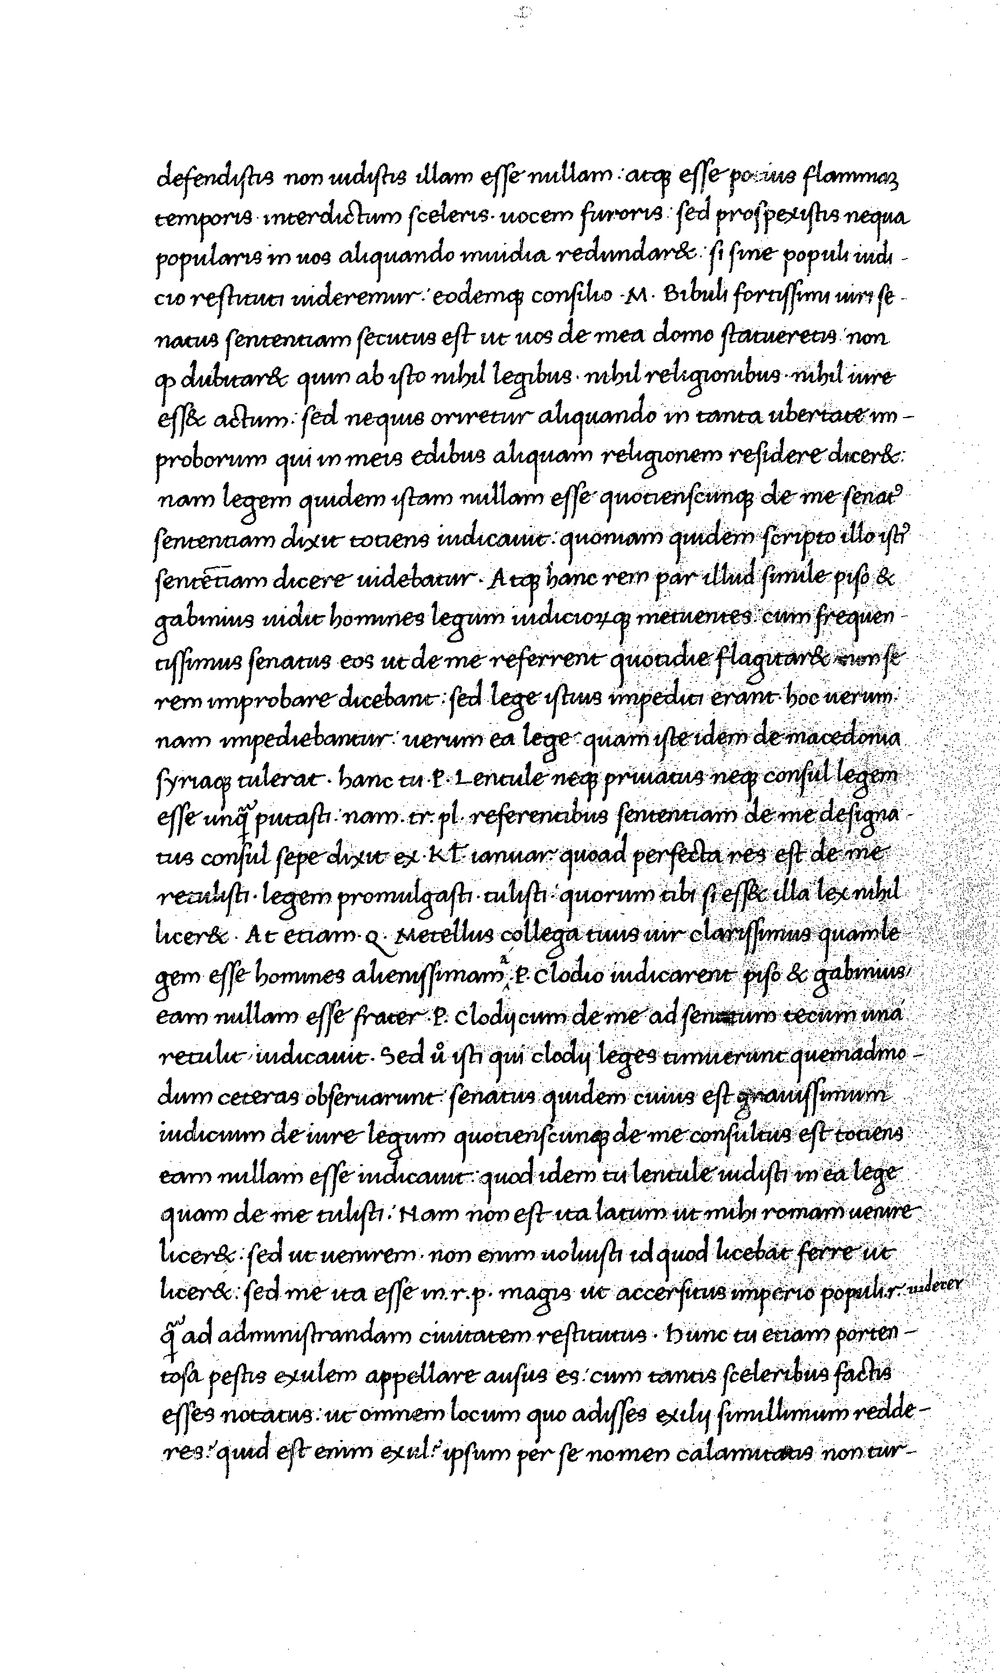 defendistis non uidistis illam esse nullam : atq; esse potius flammaꝝ
temporis · interdictum sceleris · uocem furoris : sed prospexistis nequa
popularis in uos aliquando inuidia redundar& : si sine populi iudi -
cio restituti uideremur : eodemq; consilio · M · Bibuli fortissimi uiri se -
natus sententiam secutus est ut uos de mea domo statueretis : non
ꝙ dubitar& quin ab isto nihil legibus · nihil religionibus · nihil iure
ess& actum : sed nequis oriretur aliquando in tanta ubertate im -
proborum qui in meis edibus aliquam religionem residere dicer& :
nam legem quidem istam nullam esse quotienscunq; de me senat᾽
sententiam dixit totiens iudicauit : quoniam quidem scripto illo isti᾽
sentētiam dicere uidebatur · Atq; hanc rem par illud simile piso &
gabinius uidit homines legum iudicioꝝq; metuentes : cum frequen -
tissimus senatus eos ut de me referrent quotidie flagitar& non se
rem improbare dicebant : sed lege istius impediti erant · hoc uerum :
nam impediebantur : uerum ea lege · quam iste idem de macedonia
syriaq; tulerat · hanc tu · P · Lentule neq; priuatus neq; consul legem
esse unꝗ̃ putasti · nam · tr · pl · referentibus sententiam de me designa -
tus consul sepe dixit ex · Kł · ianuar · quoad perfecta res est de me
retulisti · legem promulgasti · tulisti : quorum tibi si ess& illa lex nihil
licer& · At etiam · Q · Metellus collega tuus uir clarissimus quam le
gem esse homines alienissimam a P. Clodio iudicarent piso & gabinius
eam nullam esse frater · P · Clodij cum de me ad senatum tecum una
retulit iudicauit · Sed ů isti qui clodij leges timuerunt quemadmo -
dum ceteras obseruarunt : senatus quidem cuius est grauissimum
iudicium de iure legum quotienscunq; de me consultus est totiens
eam nullam esse iudicauit : quod idem tu lentule uidisti in ea lege
quam de me tulisti : Nam non est ita latum ut mihi romam uenire
licer& : sed ut uenirem · non enim uoluisti id quod licebat ferre ut
licer& : sed me ita esse in · r · p · magis ut accersitus imperio populi · r · uiderer
ꝗ̃ ad administrandam ciuitatem restitutus · Hunc tu etiam porten -
tosa pestis exulem appellare ausus es : cum tantis sceleribus factis
esses notatus : ut omnem locum quo adisses exilij simillimum redde -
res : quid est enim exul : ipsum per se nomen calamitatis non tur -